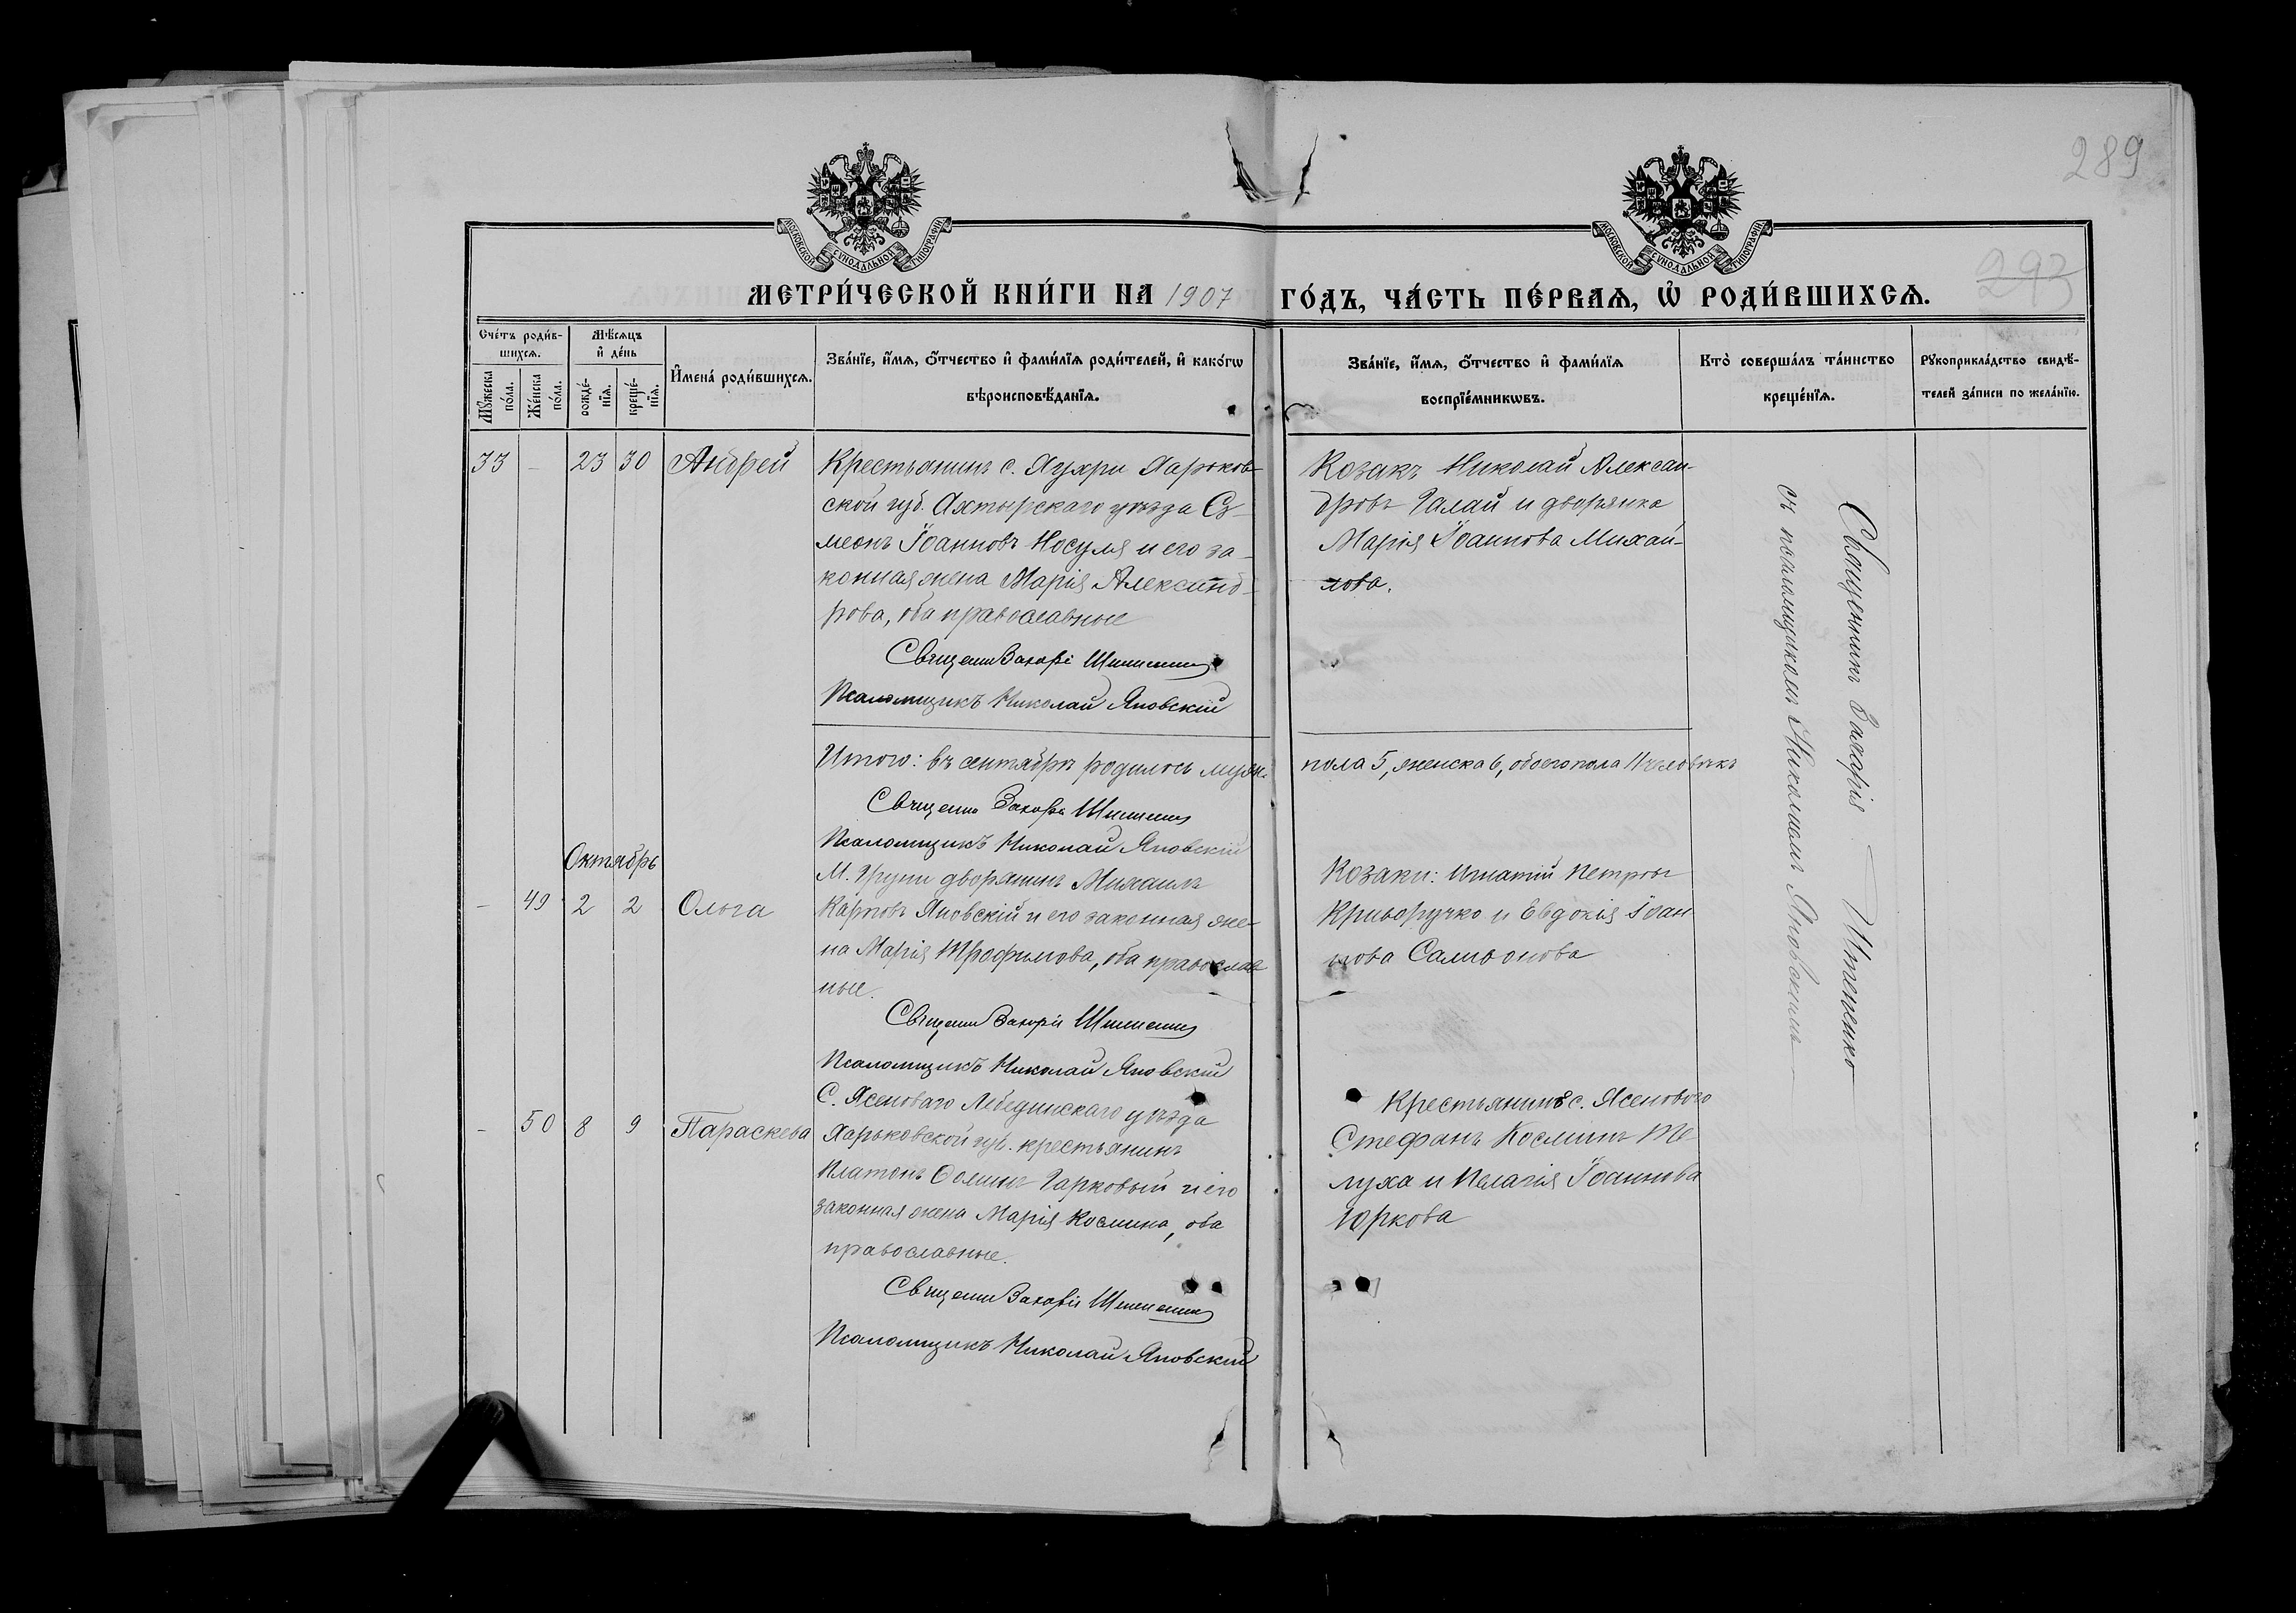 289
МОСКОВСКОЙ СУНОДАЛЬНОЙ ТИПОГРАФІИ
МОСКОВСКОЙ СУНОДАЛЬНОЙ ТИПОГРАФІИ
293
МЕТРИ́ЧЕСКОЙ КНИ́ГИ НА 1907 ГО́ДЪ, ЧА́СТЬ ПЕ́РВАѦ, Ѡ҆ РОДИ́ВШИХСѦ.
Сче́тъ роди́в-
шихсѧ.
Мꙋ́жеска по́ла.
Же́нска по́ла.
Мѣ́сѧцъ
и҆ де́нь
рожде́-
нїѧ.
креще́-
нїѧ.
И҆мена̀ роди́вшихсѧ.
Зва́нїе, и҆́мѧ, ѻ҆́тчество и҆ фами́лїѧ роди́телей, и҆ како́гѡ
вѣроисповѣ́данїѧ.
Зва́нїе, и҆́мѧ, ѻ҆́тчество и҆ фами́лїѧ
воспрїе́мникѡвъ.
Кто̀ соверша́лъ та́инство
креще́нїѧ.
Рꙋкоприкла́дство свидѣ́-
телей за́писи по жела́нїю.
33 - 23 30 Андрей
Крестьянинъ с. Яухри Харьков-
ской губ. Ахтырскаго уѣзда Си-
меонъ Іоанновъ Носуля и его за-
конная жена Марія Александ-
рова, оба православные
Священ Захарі
Псаломщикъ Николай Яновскій
Козакъ Николай Алексан-
дровъ Галай и дворянка
Марія Іоаннова Михай-
лова.
Итого: въ сентябрѣ родилось муж. пола 5, женска 6, обоего пола 11 человѣкъ
Священ Захарі
Псаломщикъ Николай Яновскій
Октябрь
- 49 2 2 Ольга
М. Груни дворянинъ Михаилъ
Карповъ Яновскій и его законная же-
на Марія Трофимова, оба православ
ные.
Священ Захарій
Псаломщикъ Николай Яновскій
Козаки: Игнатій Петровъ
Криворучко и Евдокія Іоан
нова Саливонова
- 50 8 9 Параскева
С. Ясеноваго Лебединскаго уѣзда
Харьковской губ. крестьянинъ
Платонъ Ѳоминъ Гарковый и его
законная жена Марія Космина, оба
православные.
Священ Захарій
Псаломщикъ Николай Яновскій
Крестьянинъ с. Ясенового
Стефанъ Косминъ Те-
луха и Пелагія Іоаннова
Юркова
Священникъ Захарія
съ псаломщикомъ Николаемъ Яновскимъ